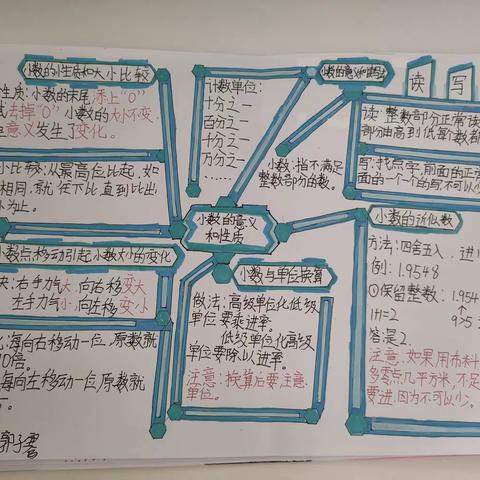 小数的性质和大小比较
性质:小数的末尾添上“0”
去掉“0”小数的大小不变
意义发生了变化。
小比较:从最高位比起,如
相同,就往下比直到比出
为止。
计数单位:
十分之一
百分之一
十分之一
万分之一
……
小数的意义和读写
小数:指不满足
整数部分的数。
读 写
读:整数部分正常读
部分由高到低每个数都
写:找点字,前面的正常
面的一个个的写,不可以少
小数的意义
和性质
小数点移动引起小数大小的变化
诀:右手力气大,向右移变大
左手力气小,向左移变小
:每向右移动一位,原数就
10倍。
每向左移动一位,原数就
小数与单位换算
做法:高级单位化低级
单位要乘进率。
低级单位化高级
单位要除以进率。
注意:换算后要注意
单位。
小数的近似数
方法:四舍五入、进
例:1.9548
①保留整数:1.954
↑
1+1=2 9>5
答:是2.
注意:如果用布料
多零点几平方米,不足
要进,因为不可以少。
郭子